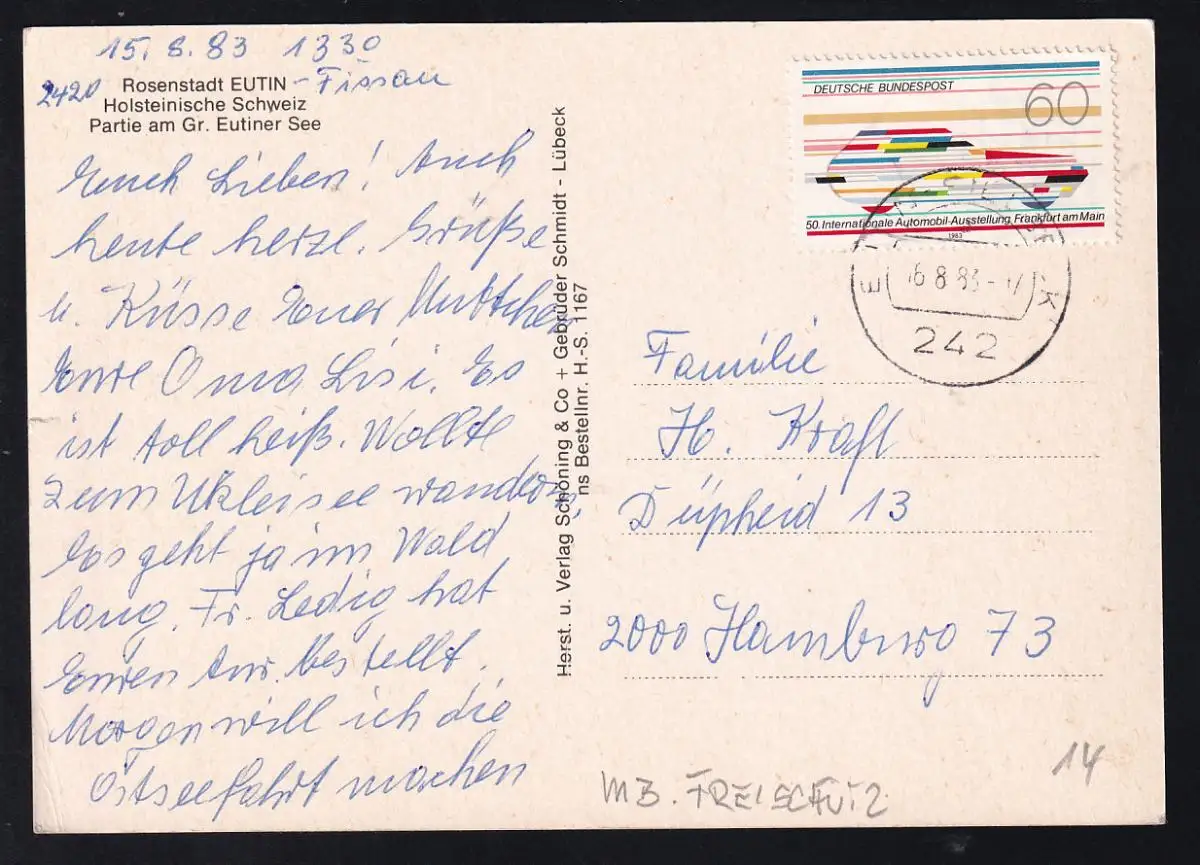 15. 8. 83 1330
2420 Rosenstadt EUTIN - Fissau
Holsteinische Schweiz
Partie am Gr. Eutiner See
Euch Lieben! Auch
heute herzl. Grüße
u. Küsse Euer Muttchen
Eure Oma Lisi. Es
ist toll heiß. Wollte
zum Ukleisee wandern,
Es geht ja im Wald
lang. Fr. Ledig hat
Euren Anr. bestellt.
Morgen will ich die
Ostseefahrt machen
Herst. u. Verlag Schöning & Co + Gebrüder Schmidt - Lübeck
ns Bestellnr. H.-S. 1167
DEUTSCHE BUNDESPOST
60
50. Internationale Automobil-Ausstellung Frankfurt am Main
1983
16.8.83
242
Familie
H. Kraft
Düpheid 13
2000 Hamburg 73
14
MB. FREISCHÜTZ